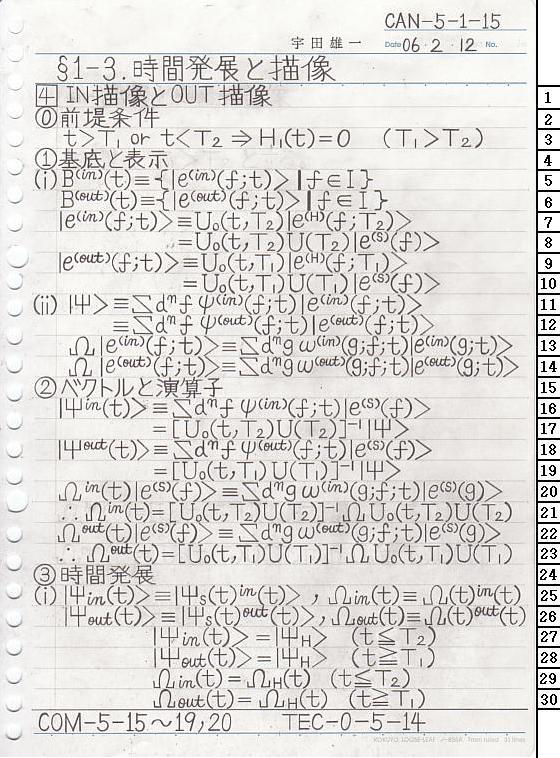 CAN-5-1-15
宇田雄一 Date 06・2・12 No.
§1-3.時間発展と描像
4 IN描像とOUT描像
⓪前堤条件
t>T₁ or t<T₂ ⇒ H₁(t)=0 (T₁>T₂)
①基底と表示
(i) B⁽ⁱⁿ⁾(t)≡{|e⁽ⁱⁿ⁾(f;t)>|f∈I}
B⁽ᵒᵘᵗ⁾(t)≡{|e⁽ᵒᵘᵗ⁾(f;t)>|f∈I}
|e⁽ⁱⁿ⁾(f;t)>≡U₀(t,T₂)|e⁽ᴴ⁾(f;T₂)>
=U₀(t,T₂)U(T₂)|e⁽ˢ⁾(f)>
|e⁽ᵒᵘᵗ⁾(f;t)>≡U₀(t,T₁)|e⁽ᴴ⁾(f;T₁)>
=U₀(t,T₁)U(T₁)|e⁽ˢ⁾(f)>
(ii) |Ψ>≡∑dⁿf ψ⁽ⁱⁿ⁾(f;t)|e⁽ⁱⁿ⁾(f;t)>
≡∑dⁿf ψ⁽ᵒᵘᵗ⁾(f;t)|e⁽ᵒᵘᵗ⁾(f;t)>
Ω|e⁽ⁱⁿ⁾(f;t)>≡∑dⁿg ω⁽ⁱⁿ⁾(g;f;t)|e⁽ⁱⁿ⁾(g;t)>
Ω|e⁽ᵒᵘᵗ⁾(f;t)>≡∑dⁿg ω⁽ᵒᵘᵗ⁾(g;f;t)|e⁽ᵒᵘᵗ⁾(g;t)>
②ベクトルと演算子
|Ψⁱⁿ(t)>≡∑dⁿf ψ⁽ⁱⁿ⁾(f;t)|e⁽ˢ⁾(f)>
=[U₀(t,T₂)U(T₂)]⁻¹|Ψ>
|Ψᵒᵘᵗ(t)>≡∑dⁿf ψ⁽ᵒᵘᵗ⁾(f;t)|e⁽ˢ⁾(f)>
=[U₀(t,T₁)U(T₁)]⁻¹|Ψ>
Ωⁱⁿ(t)|e⁽ˢ⁾(f)>≡∑dⁿg ω⁽ⁱⁿ⁾(g;f;t)|e⁽ˢ⁾(g)>
∴Ωⁱⁿ(t)=[U₀(t,T₂)U(T₂)]⁻¹Ω U₀(t,T₂)U(T₂)
Ωᵒᵘᵗ(t)|e⁽ˢ⁾(f)>≡∑dⁿg ω⁽ᵒᵘᵗ⁾(g;f;t)|e⁽ˢ⁾(g)>
∴Ωᵒᵘᵗ(t)=[U₀(t,T₁)U(T₁)]⁻¹Ω U₀(t,T₁)U(T₁)
③時間発展
(i) |Ψᵢₙ(t)>≡|Ψₛ(t)ⁱⁿ(t)>, Ωᵢₙ(t)≡Ω(t)ⁱⁿ(t)
|Ψₒᵤₜ(t)>≡|Ψₛ(t)ᵒᵘᵗ(t)>, Ωₒᵤₜ(t)≡Ω(t)ᵒᵘᵗ(t)
|Ψᵢₙ(t)>=|Ψ_H> (t≦T₂)
|Ψₒᵤₜ(t)>=|Ψ_H> (t≧T₁)
Ωᵢₙ(t)=Ω_H(t) (t≦T₂)
Ωₒᵤₜ(t)=Ω_H(t) (t≧T₁)
COM-5-15〜19,20 TEC-0-5-14
KOKUYO LOOSE-LEAF ノ-836A 7mm ruled 31 lines
1
2
3
4
5
6
7
8
9
10
11
12
13
14
15
16
17
18
19
20
21
22
23
24
25
26
27
28
29
30